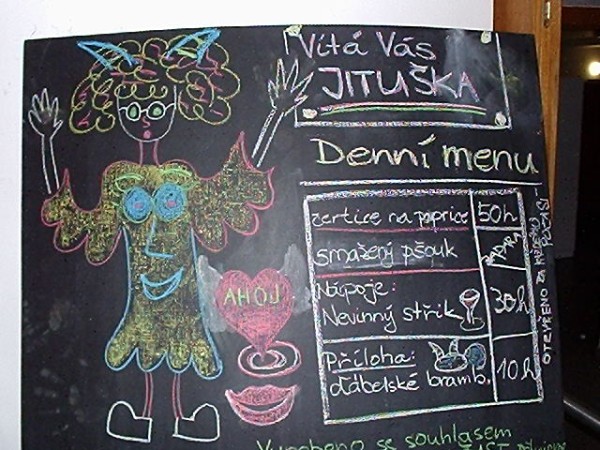 Vítá Vás
JITUŠKA
Denní menu
čertice na paprice 50h
smažený pšouk
Nápoje:
Nevinný střik 30h
Příloha:
ďábelské bramb. 10h
OTEVŘENO ZA KAŽDÉHO
POČASÍ
AHOJ
Vyrobeno se souhlasem